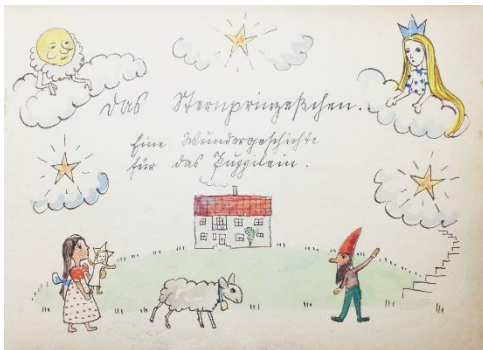 Das Sternprinzeßchen.
Eine Wundergeschichte
für das Puppilein.